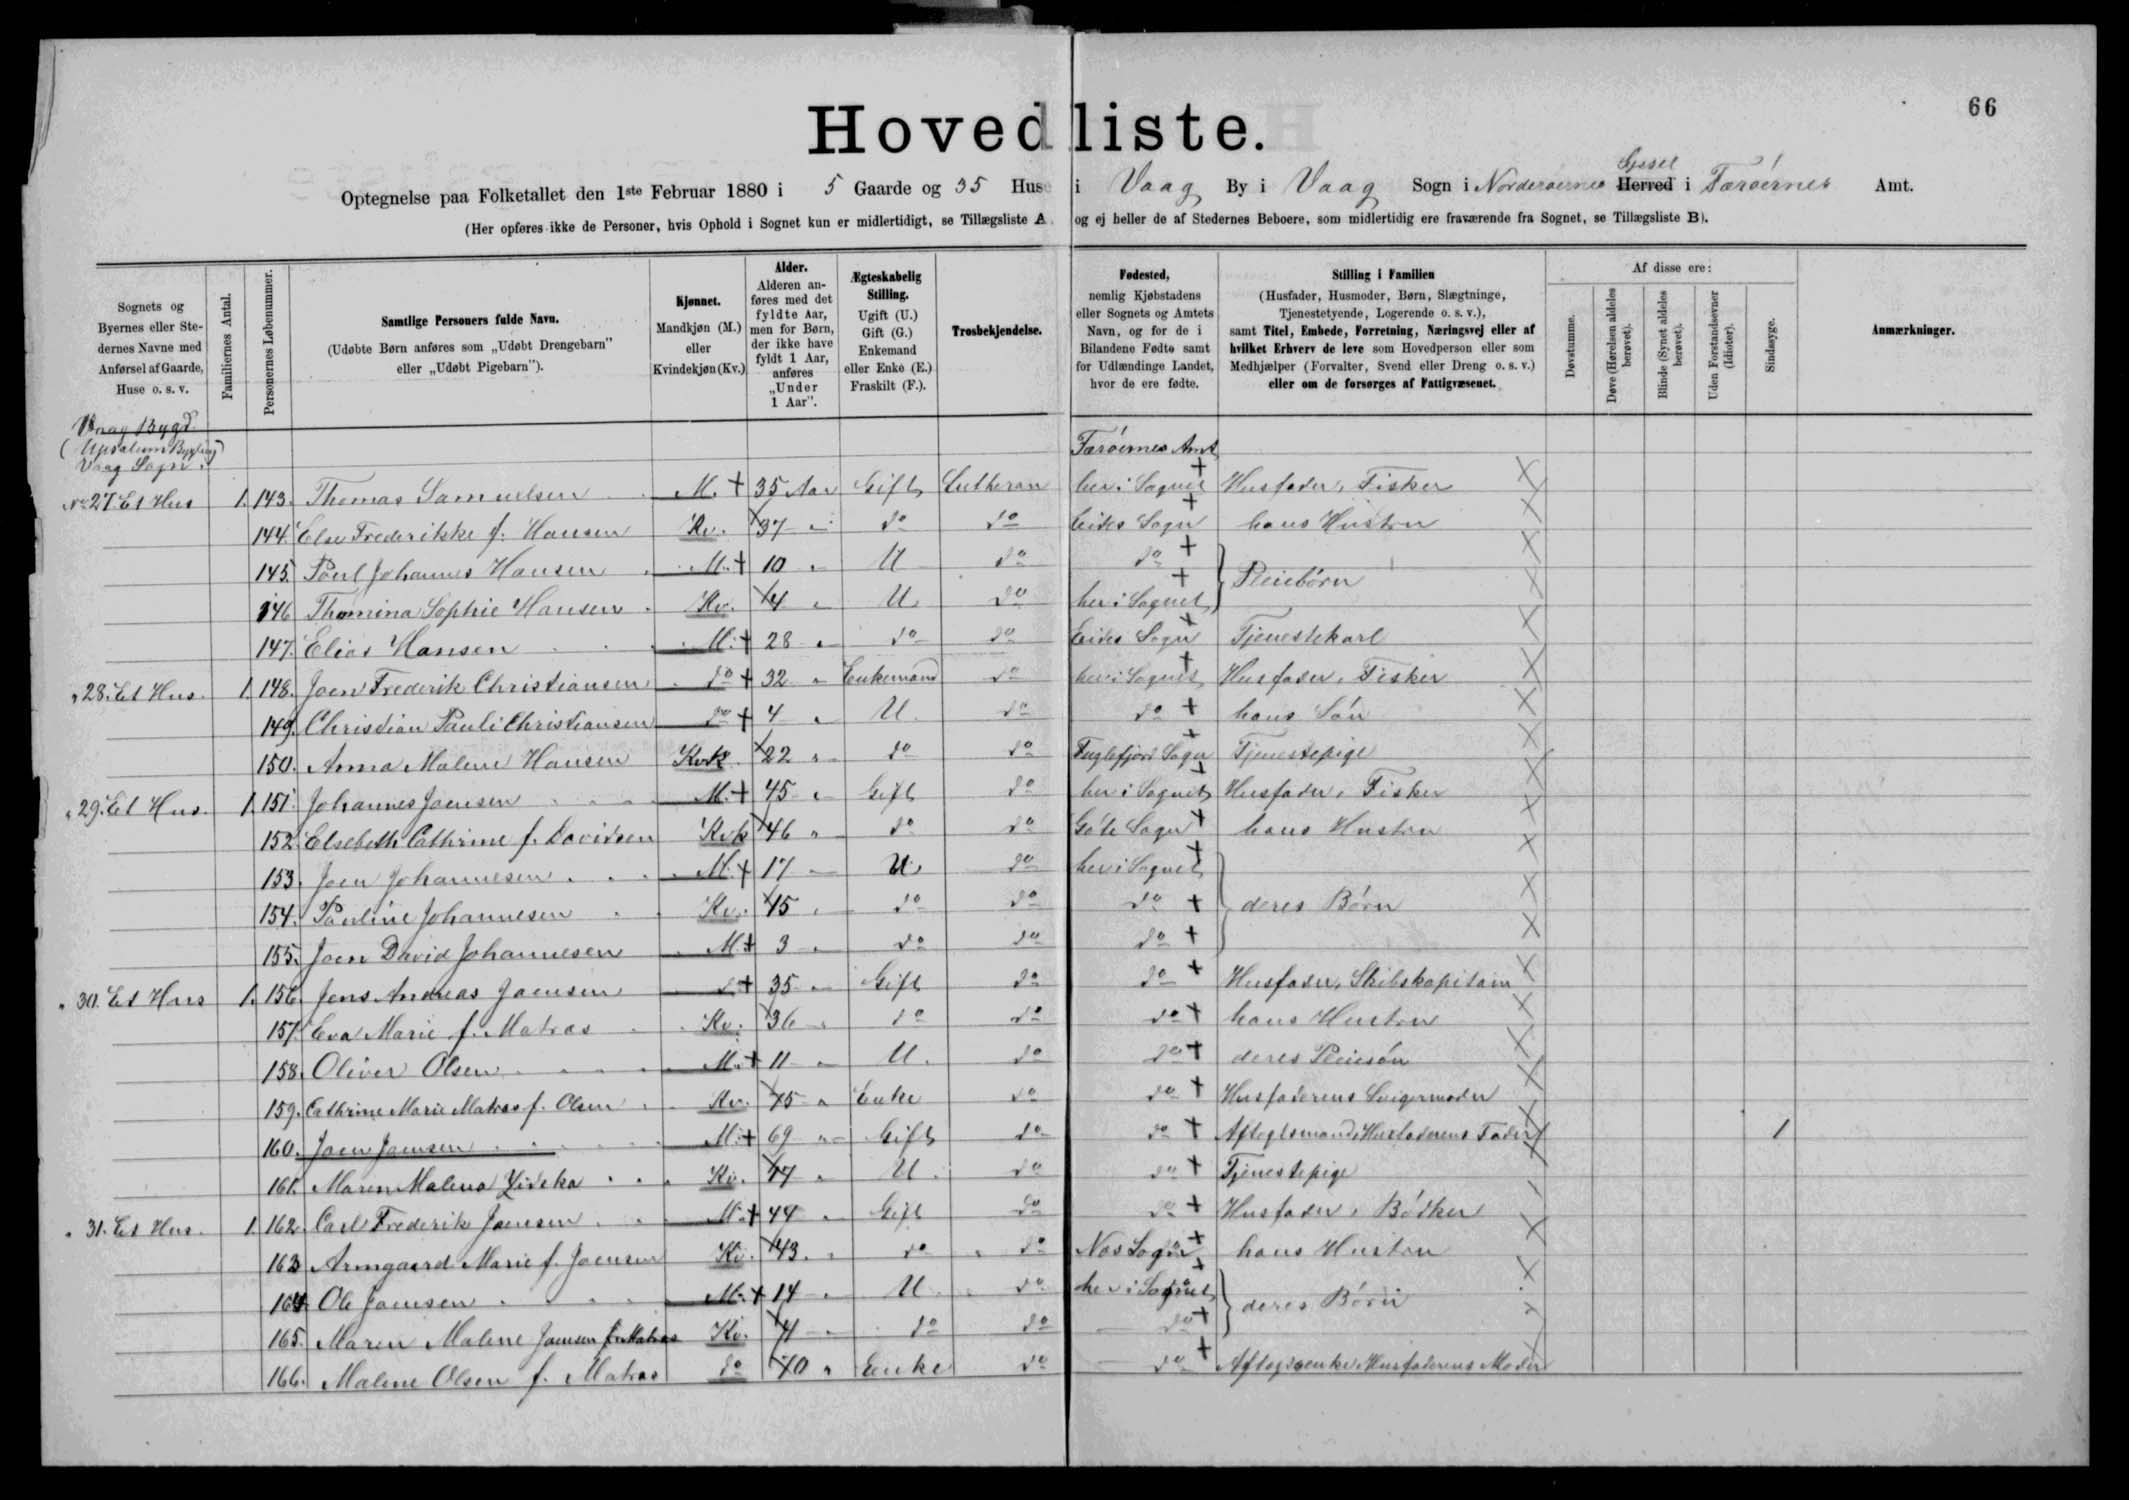 66
Hovedliste.
Optegnelse paa Folketallet den 1ste Februar 1880 i 5 Gaarde og 35 Huse i Vaag By i Vaag Sogn i Norderøernes Syssel Herred i Færøernes Amt.
(Her opføres ikke de Personer, hvis Ophold i Sognet kun er midlertidigt, se Tillægsliste A. og ej heller de af Stedernes Beboere, som midlertidig ere fraværende fra Sognet, se Tillægsliste B).
Sognets og Byernes eller Stedernes Navne med Anførsel af Gaarde, Huse o. s. v.
Familiernes Antal.
Personernes Løbenummer.
Samtlige Personers fulde Navn. (Udøbte Børn anføres som „Udøbt Drengebarn" eller „Udøbt Pigebarn").
Kjønnet. Mandkjøn (M.) eller Kvindekjøn (Kv.)
Alder. Alderen anføres med det fyldte Aar, men for Børn, der ikke have fyldt 1 Aar, anføres „Under 1 Aar".
Ægteskabelig Stilling. Ugift (U.) Gift (G.) Enkemand eller Enke (E.) Fraskilt (F.).
Trosbekjendelse.
Fødested, nemlig Kjøbstadens eller Sognets og Amtets Navn, og for de i Bilandene Fødte samt for Udlændinge Landet, hvor de ere fødte.
Stilling i Familien (Husfader, Husmoder, Børn, Slægtninge, Tjenestetyende, Logerende o. s. v.), samt Titel, Embede, Forretning, Næringsvej eller af hvilket Erhverv de leve som Hovedperson eller som Medhjælper (Forvalter, Svend eller Dreng o. s. v.) eller om de forsørges af Fattigvæsenet.
Af disse ere:
Døvstumme.
Døve (Hørelsen aldeles berøvet).
Blinde (Synet aldeles berøvet).
Uden Forstandsevner (Idioter).
Sindssyge.
Anmærkninger.
Vaag Bygd
Vaag Sogn. Færøernes Amt
No 27. Et Hus 1. 143. Thomas Samuelsen M. + 35 Aar Gift Lutheran her i Sognet + Husfader, Fisker X
144. Else Frederikke f. Hansen Kv. 37 do do Eides Sogn + hans Hustru X
145. Poul Johannes Hansen M. + 10 U do do + Pleiebörn X
146 Thomina Sophie Hansen Kv. 4 U. do her i Sognet + X
147. Elias Hansen M. + 28 do do Eides Sogn + Tjenestekarl X
" 28. Et Hus. 1. 148. Joen Frederik Christiansen do + 32 Enkemand do her i Sognet + Husfader, Fisker X
149. Christian Pauli Christiansen do + 4 U. do do + hans Sön X
150. Anna Malene Hansen Kvk. 22 do do Fuglefjord Sogn + Tjenestepige X
" 29. Et Hus. 1. 151. Johannes Joensen M. + 45 Gift do her i Sognet + Husfader, Fisker X
152. Elsebeth Cathrine f. Davidsen Kvk 46 do do Göte Sogn + hans Hustru X
153. Joen Johannesen M. + 17 U. do her i Sognet + X
154. Pauline Johannesen Kv. 15 do do do + deres Börn X
155. Joen David Johannesen M. + 3 do do do + X
" 30. Et Hus 1. 156. Jens Andreas Joensen do + 35 Gift do do + Husfader, Skibskapitain X
157. Eva Marie f. Matras Kv. 36 do do do + hans Hustru X
158. Oliver Olsen M. + 11 U. do do + deres Pleiesön X
159. Cathrine Marie Matras f. Olsen Kv. 75 Enke do do + Husfaderens Svigermoder X
160. Joen Joensen M. + 69 Gift do do + Aftægtsmand, Husfaderens Fader X 1
161. Maren Malena Kv. 17 U. do do + Tjenestepige
" 31. Et Hus. 1. 162. Carl Frederik Joensen M. + 44 Gift do do + Husfader, Bödker
163 Armgaard Marie f. Joensen Kv. 43. do do Næs Sogn + hans Hustru X
164 Ole Joensen M. + 14 U. do her i Sognet + deres Börn X
165. Maren Malene Joensen Kv. do do do +
166. Malene Olsen f. Matras do 70 Enke do do + Aftægtsenke, Husfaderens Moder